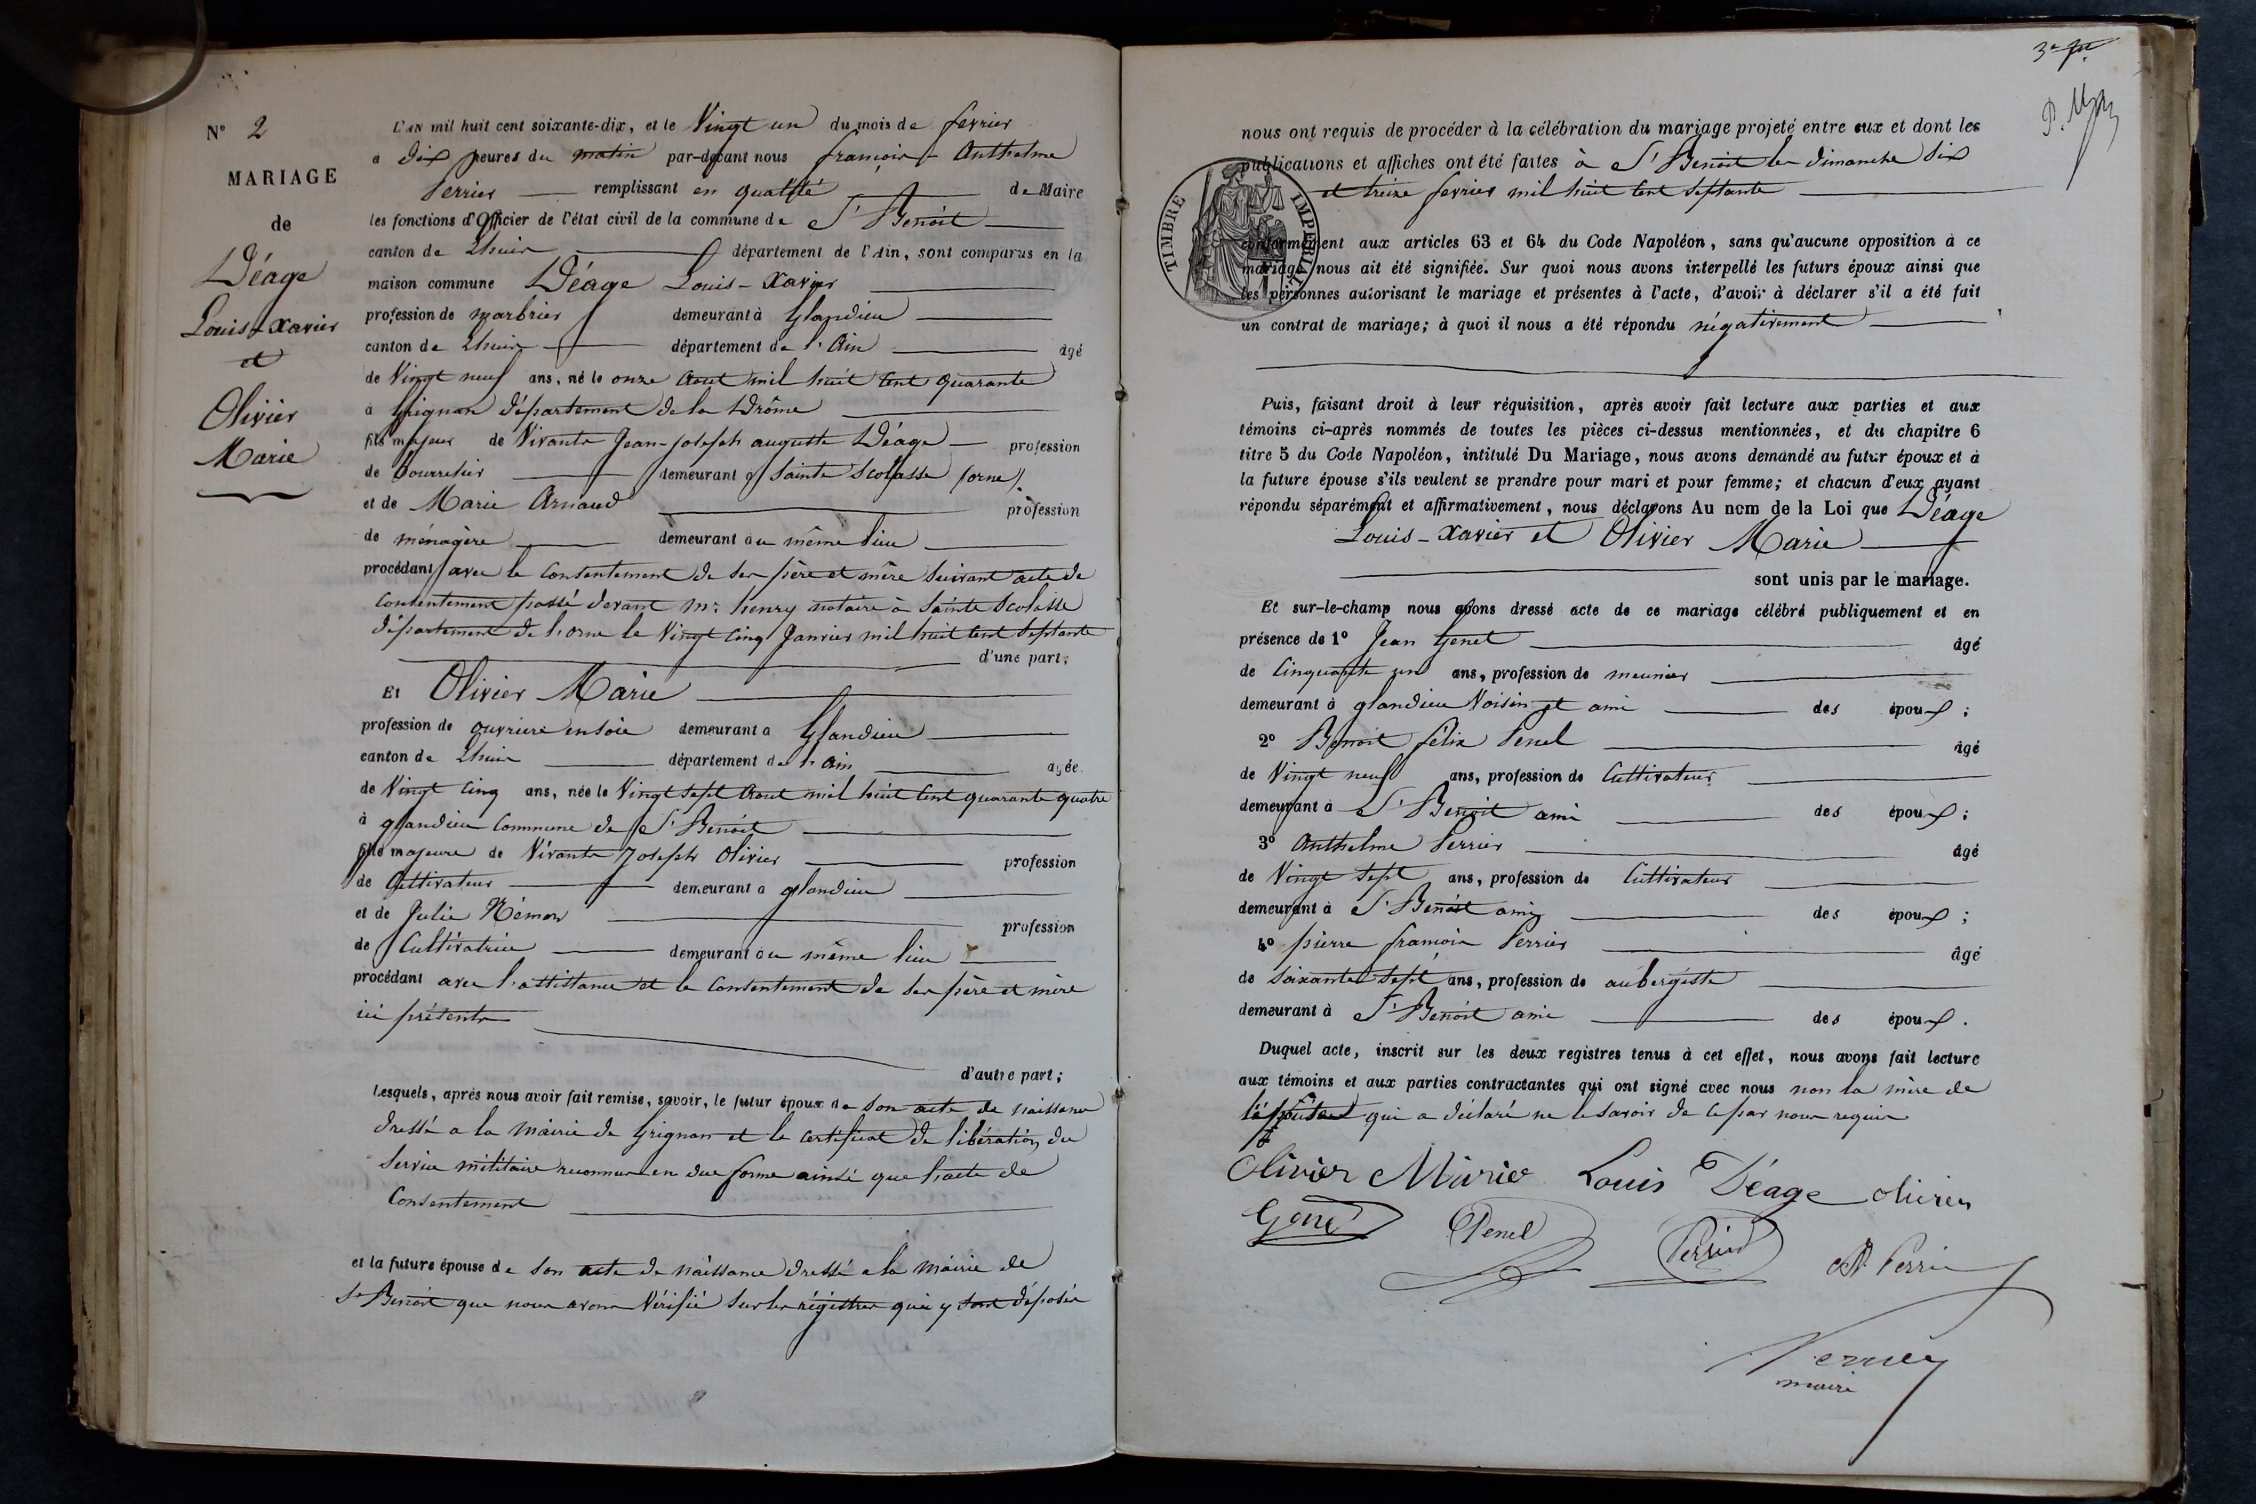 N° 2
MARIAGE
de
Déage
Louis-Xavier
et
Olivier
Marie
L'an mil huit cent soixante-dix, et le Vingt un du mois de fevrier
à dix heures du matin par-devant nous françois-Anthelme
Perrier remplissant en qualité de Maire
les fonctions d'Officier de l'état civil de la commune de St Benoit
canton de Lhuis département de l'Ain, sont comparus en la
maison commune Déage Louis-Xavier
profession de marbrier demeurant à Glandieu
canton de Lhuis département de l'Ain âgé
de Vingt neuf ans, né le onze Aout mil huit cent quarante
à Grignan département de la Drôme
fils majeur de Vivants Jean-joseph auguste Déage profession
de bourrelier demeurant à Sainte Scolasse (orne)
et de Marie Arnaud profession
de ménagère demeurant au même lieu
procédant avec le consentement de ses père et mère suivant acte de
consentement passé devant mr henry notaire à Sainte Scolasse
département de l'orne le Vingt cinq Janvier mil huit cent septante
d'une part;
Et Olivier Marie
profession de ouvriere en soie demeurant à Glandieu
canton de Lhuis département de l'ain agée
de Vingt cinq ans, née le Vingt sept Aout mil huit cent quarante quatre
à glandieu commune de St Benoit
fille majeure de Vivants Joseph Olivier profession
de Cultivateur demeurant à glandieu
et de Julie Némoz profession
de Cultivatrice demeurant au même lieu
procédant avec l'assistance et le consentement de ses père et mère
ici présents
d'autre part;
Lesquels, après nous avoir fait remise, savoir, le futur époux de son acte de naissance
dressé a la mairie de Grignan et le certificat de libération du
service militaire reconnus en due forme ainsi que l'acte de
Consentement
et la future épouse de son acte de naissance dressé a la mairie de
St Benoit que nous avons Vérifié sur les régistres qui y sont déposés
3e
nous ont requis de procéder à la célébration du mariage projeté entre eux et dont les
publications et affiches ont été faites à St Benoit les dimanche six
et treize fevrier mil huit cent septante
TIMBRE IMPERIAL
conformément aux articles 63 et 64 du Code Napoléon, sans qu'aucune opposition à ce
mariage nous ait été signifiée. Sur quoi nous avons interpellé les futurs époux ainsi que
les personnes autorisant le mariage et présentes à l'acte, d'avoir à déclarer s'il a été fait
un contrat de mariage; à quoi il nous a été répondu négativement
Puis, faisant droit à leur réquisition, après avoir fait lecture aux parties et aux
témoins ci-après nommés de toutes les pièces ci-dessus mentionnées, et du chapitre 6
titre 5 du Code Napoléon, intitulé Du Mariage, nous avons demandé au futur époux et à
la future épouse s'ils veulent se prendre pour mari et pour femme; et chacun d'eux ayant
répondu séparément et affirmativement, nous déclarons Au nom de la Loi que Déage
Louis-Xavier et Olivier Marie
sont unis par le mariage.
Et sur-le-champ nous avons dressé acte de ce mariage célébré publiquement et en
présence de 1° Jean Genet âgé
de Cinquante un ans, profession de meunier
demeurant à glandieu Voisin et ami des époux;
2° Benoit félix Penel âgé
de Vingt neuf ans, profession de Cultivateur
demeurant à St Benoit ami des époux;
3° Anthelme Perrier âgé
de Vingt sept ans, profession de Cultivateur
demeurant à St Benoit ami des époux;
4° pierre françois Perrier âgé
de soixante sept ans, profession de aubergiste
demeurant à St Benoit ami des époux.
Duquel acte, inscrit sur les deux registres tenus à cet effet, nous avons fait lecture
aux témoins et aux parties contractantes qui ont signé avec nous non la mère de
l'épouse qui a déclaré ne le savoir de ce par nous requis
Olivier Marie Louis Déage olivier
Genet Penel Perrier A Perrier
Perrier
maire